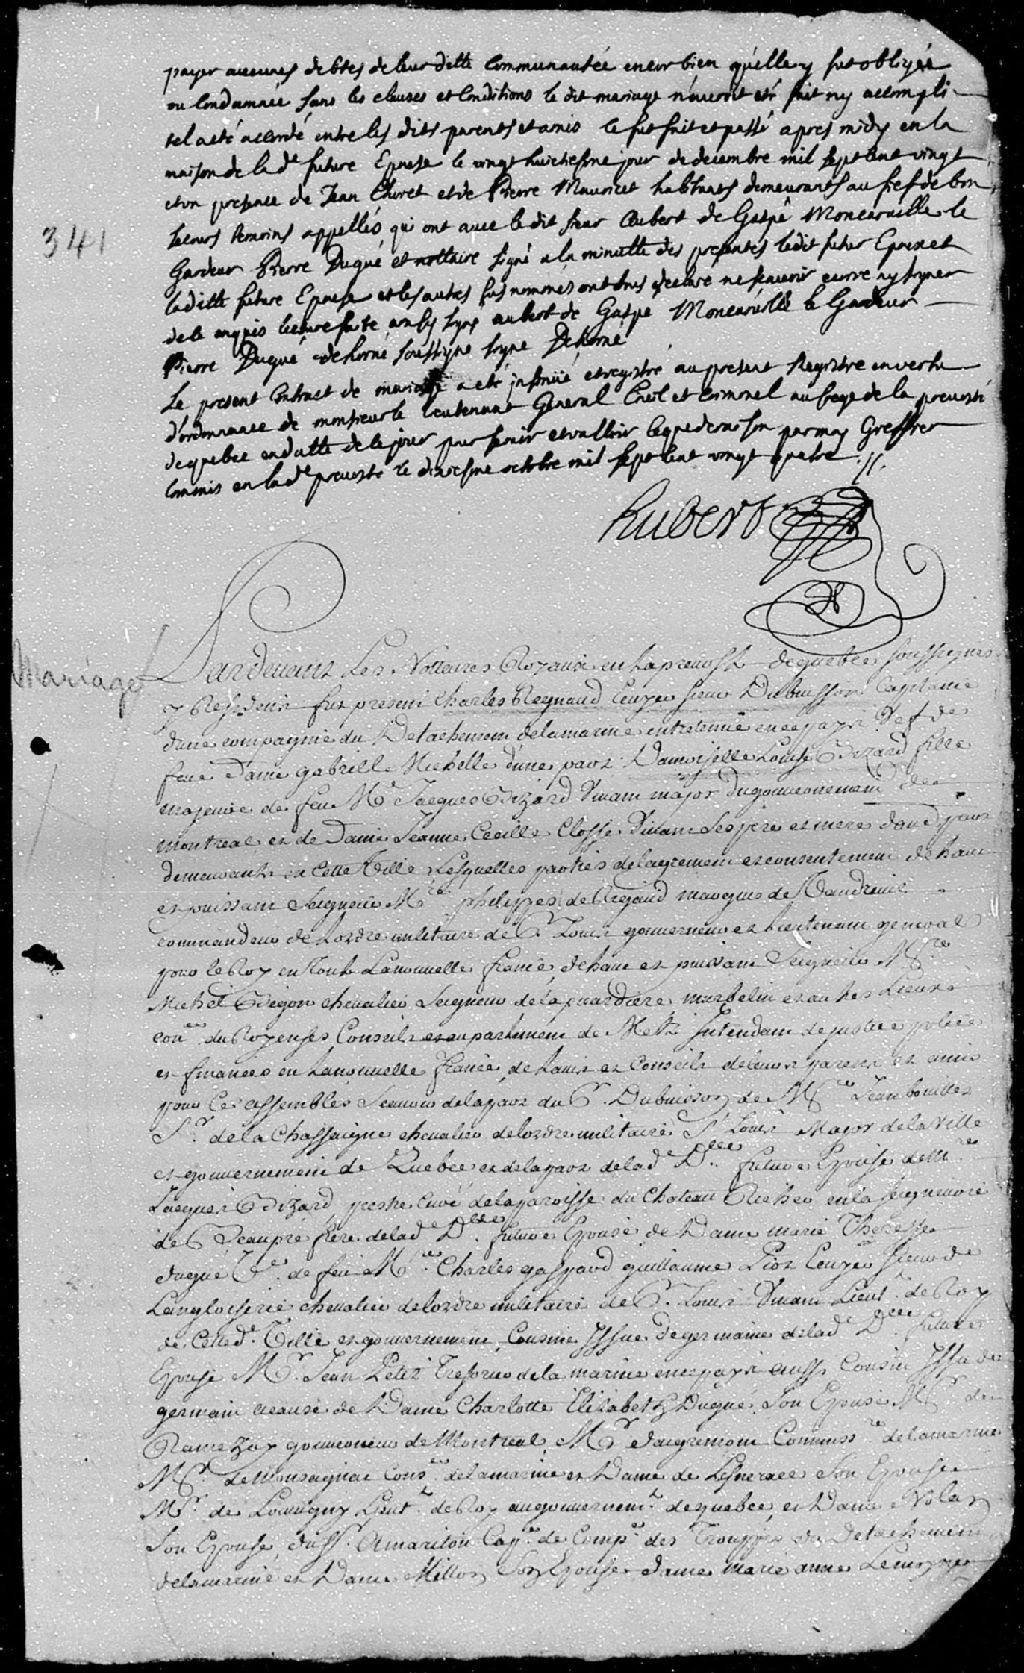 payer aucunes debtes de leur ditte Communautée encor bien qu'elle y fut obligée
ou Condamnée sans les clauses et Conditions le dit mariage n'auroit eté fait ny accompli
tel acté accordé entre les dits parents et amis le fut fait et passé apres midy en la
maison de la d.e future Epouse le vingt huictiesme jour de decembre mil sept cent vingt
et en presence de Jean Choret et de Pierre Mauricet habitants demeurants au fief de bon
secours temoins appellés qui ont avec le dit sieur Aubert de Gaspé Moncearuille le
Gardeur Pierre Dugué et nottaire signé a la minutte des presentes ledit futur Epoux et
laditte future Epouse et les autres sus nommés ont dit declare ne scavoir ecrire ny signer
de ce enquis lecture faite ainsy signé aubert de Gaspé Moncaruille le Gardeur
Pierre Dugué dehorné soussigné signé Dehorné
Le present Contract de mariage a eté insinüé et registré au present Registre en vertu
d'ordonnance de monsieur le lieutenant General Civil et Criminel au siege de la prevosté
de quebec en datte de ce jour pour servir et valloir ce que de raison par moy Greffier
Commis en la d.e prevosté le dixiesme octobre mil sept cent vingt quatre //.
hubert
341
Mariage
Pardevant Les Nottaires Royaux en la prevosté de quebec soussignés
y Residens fut present Charles Regnaud Ecuyer sieur Dubuisson Capitaine
dune compagnie du Detachement de la marine entretenue en ce pays
feue Dame gabrielle Michelle d'une part Damoiselle Louise Bizard fille
majeure de feu M.r Jacques Bizard vivant major du gouvernement de
montreal et de Dame Jeanne Cecille Closse vivant ses pere et mere dautre part
demeurants en cette Ville Lesquelles parties de l'agrement et consentement de haut
et puissant Seigneur M.re philippes de Rigaud marquis de Vaudreuil
commandeur de Lordre militaire de S.t Louis gouverneur et Lieutenant general
pour le Roy en toute La nouvelle france de haut et puissant Seigneur M.re
Michel Begon chevalier Seigneur de la picardiere murbelin et autres Lieux
con.er du Roy en ses Conseils et en parlement de Metz Intendant de justice police
et finances en La nouvelle France, de lavis et Conseils de leurs parens et amis
pour ce assemblés Scavoir de la part du S.r Dubuisson de M.re Jean bouillet
S.r de la Chassaigne chevalier de lordre militaire S.t Louis Major de la Ville
et gouvernement de Quebec et de la part de lad.e D.lle future Epouse de M.re
Jacques Bizard prestre curé de la paroisse du Chateau Richer en la seigneurie
de Beaupré frere de lad.e D.lle future Epouse de Dame Marie Therese
dugué V.e de feu M.re Charles gaspard guillaume Piot Ecuyer Sieur de
Langloiserie chevalier de lordre militaire de S.t Louis vivant Lieut. de Roy
de Cette d.e Ville et gouvernement, Cousine Issue de germaine de lad.e D.lle future
Epouse M.r Jean Petit Tresorier de la marine en ce pays aussy Cousin Issu de
germain a cause de Dame Charlotte Elizabeth Dugué Son Epouse M.r de
Ramezay gouverneur de Montreal, M.r daigremont Commiss.re de la marine
M.r de Monseignac Cons.er de la marine et Dame de Son Epouse
M.r de Louvigny Lieut. de Roy au gouvernem.t de quebec, et Dame Nolan
Son Epouse du S.r Amariton Cap.ne de Comp.e des Trouppes du Detachement
de la marine et Dame Millon Son Epouse dame marie anne Lemoyne